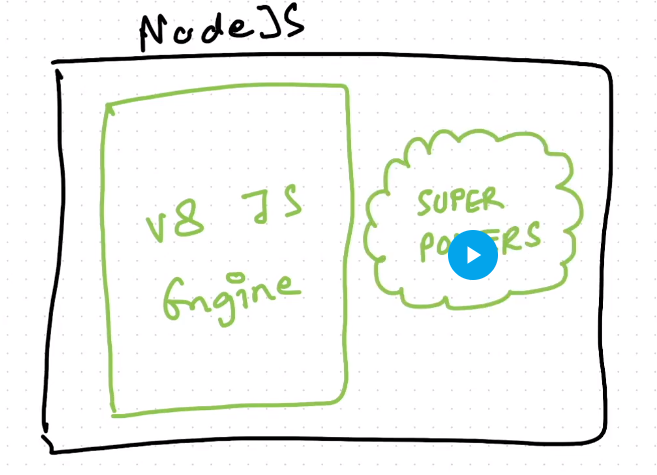 NodeJS
v8 JS
Engine
SUPER
POWERS